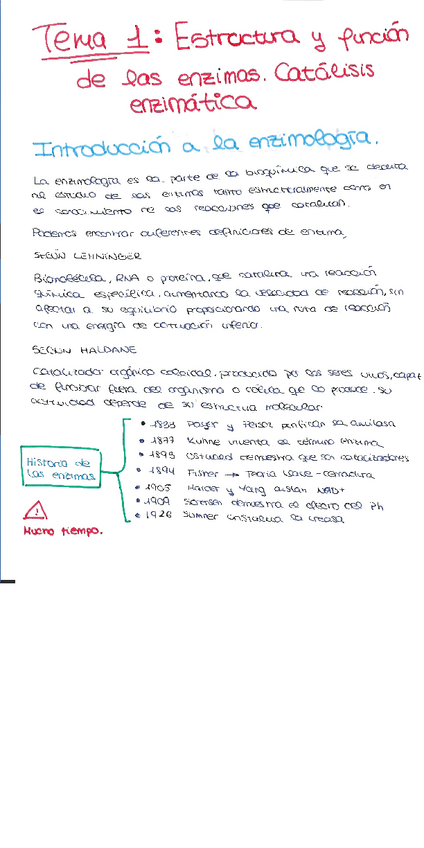 Tema 1: Estructura y función
de las enzimas. Catálisis
enzimática
Introducción a la enzimología.
La enzimología es la parte de la bioquímica que se dedica
al estudio de las enzimas tanto estructuralmente como en
el conocimiento de las reacciones que catalizan.
Podemos encontrar diferentes definiciones de enzima,
SEGÚN LEHNINGER
Biomolécula, RNA o proteína, que cataliza una reacción
química específica, aumentando la velocidad de reacción, sin
afectar a su equilibrio proporcionando una ruta de reacción
con una energía de activación inferior.
SEGÚN HALDANE
Catalizador orgánico coloidal, producido por los seres vivos, capaz
de funcionar fuera del organismo o célula que lo produce. Su
actividad depende de su estructura molecular.
Historia de
las enzimas
• 1833 Payen y Persoz purifican la amilasa
• 1877 Kuhne inventa el término enzima
• 1893 Ostwald demuestra que son catalizadores
• 1894 Fisher → Teoría llave-cerradura
• 1905 Harder y Yang aíslan NAD+
• 1909 Sorensen demuestra el efecto del Ph
• 1926 Sumner cristaliza la ureasa
!
Mucho tiempo.